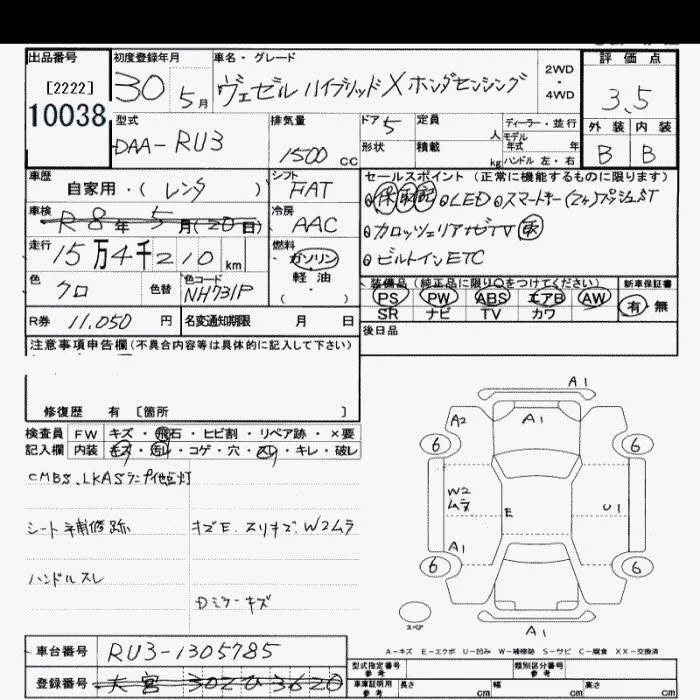 出品番号 初度登録年月 車名・グレード 評価点
[2222]
10038
30 5月 ヴェゼル ハイブリッド X ホンダセンシング 2WD・4WD 3.5
型式 排気量 ドア 定員 ディーラー・並行 外装 内装
DAA-RU3 1500 CC 5 人 モデル年式 年 B B
形状 積載 kg ハンドル 左・右
車歴 シフト セールスポイント (正常に機能するものに限ります)
自家用・( レンタ ) FAT 保 取 記 LED スマートキー(2ヶ)プッシュST
車検 冷房
R 8年 5月(20日) AAC カロッツェリアナビTV
走行 燃料 ビルトインETC
15万4千210 km ガソリン
軽油
( ・ )
色 色替 色コード 装備品 (純正品に限り○をつけてください) 新車保証書
クロ NH731P PS PW ABS エアB AW 有・無
SR ナビ TV カワ
R券 11,050 円 名変通知期限 月 日 後日品
注意事項申告欄(不具合内容等は具体的に記入して下さい)
修復歴 有 [箇所 ]
検査員 FW キズ・飛石・ヒビ割・リペア跡・×要
記入欄 内装 キズ・汚レ・コゲ・穴・スレ・キレ・破レ
CMBS、LKASランプ他点灯
シート補修跡 キズE.スリキズ.W2ムラ
ハンドルスレ
Dミラーキズ
A1
A2 A1
6 6
W2
ムラ E U1
A1
6 6
スペア
A1
A-キズ E-エクボ U-凹み W-補修跡 S-サビ C-腐食 XX-交換済
車台番号 RU3-1305785
登録番号 大宮 302 ひ 3620
型式指定番号 参考 類別区分番号 参考
車庫証明用 参考 長さ cm 幅 cm 高さ cm